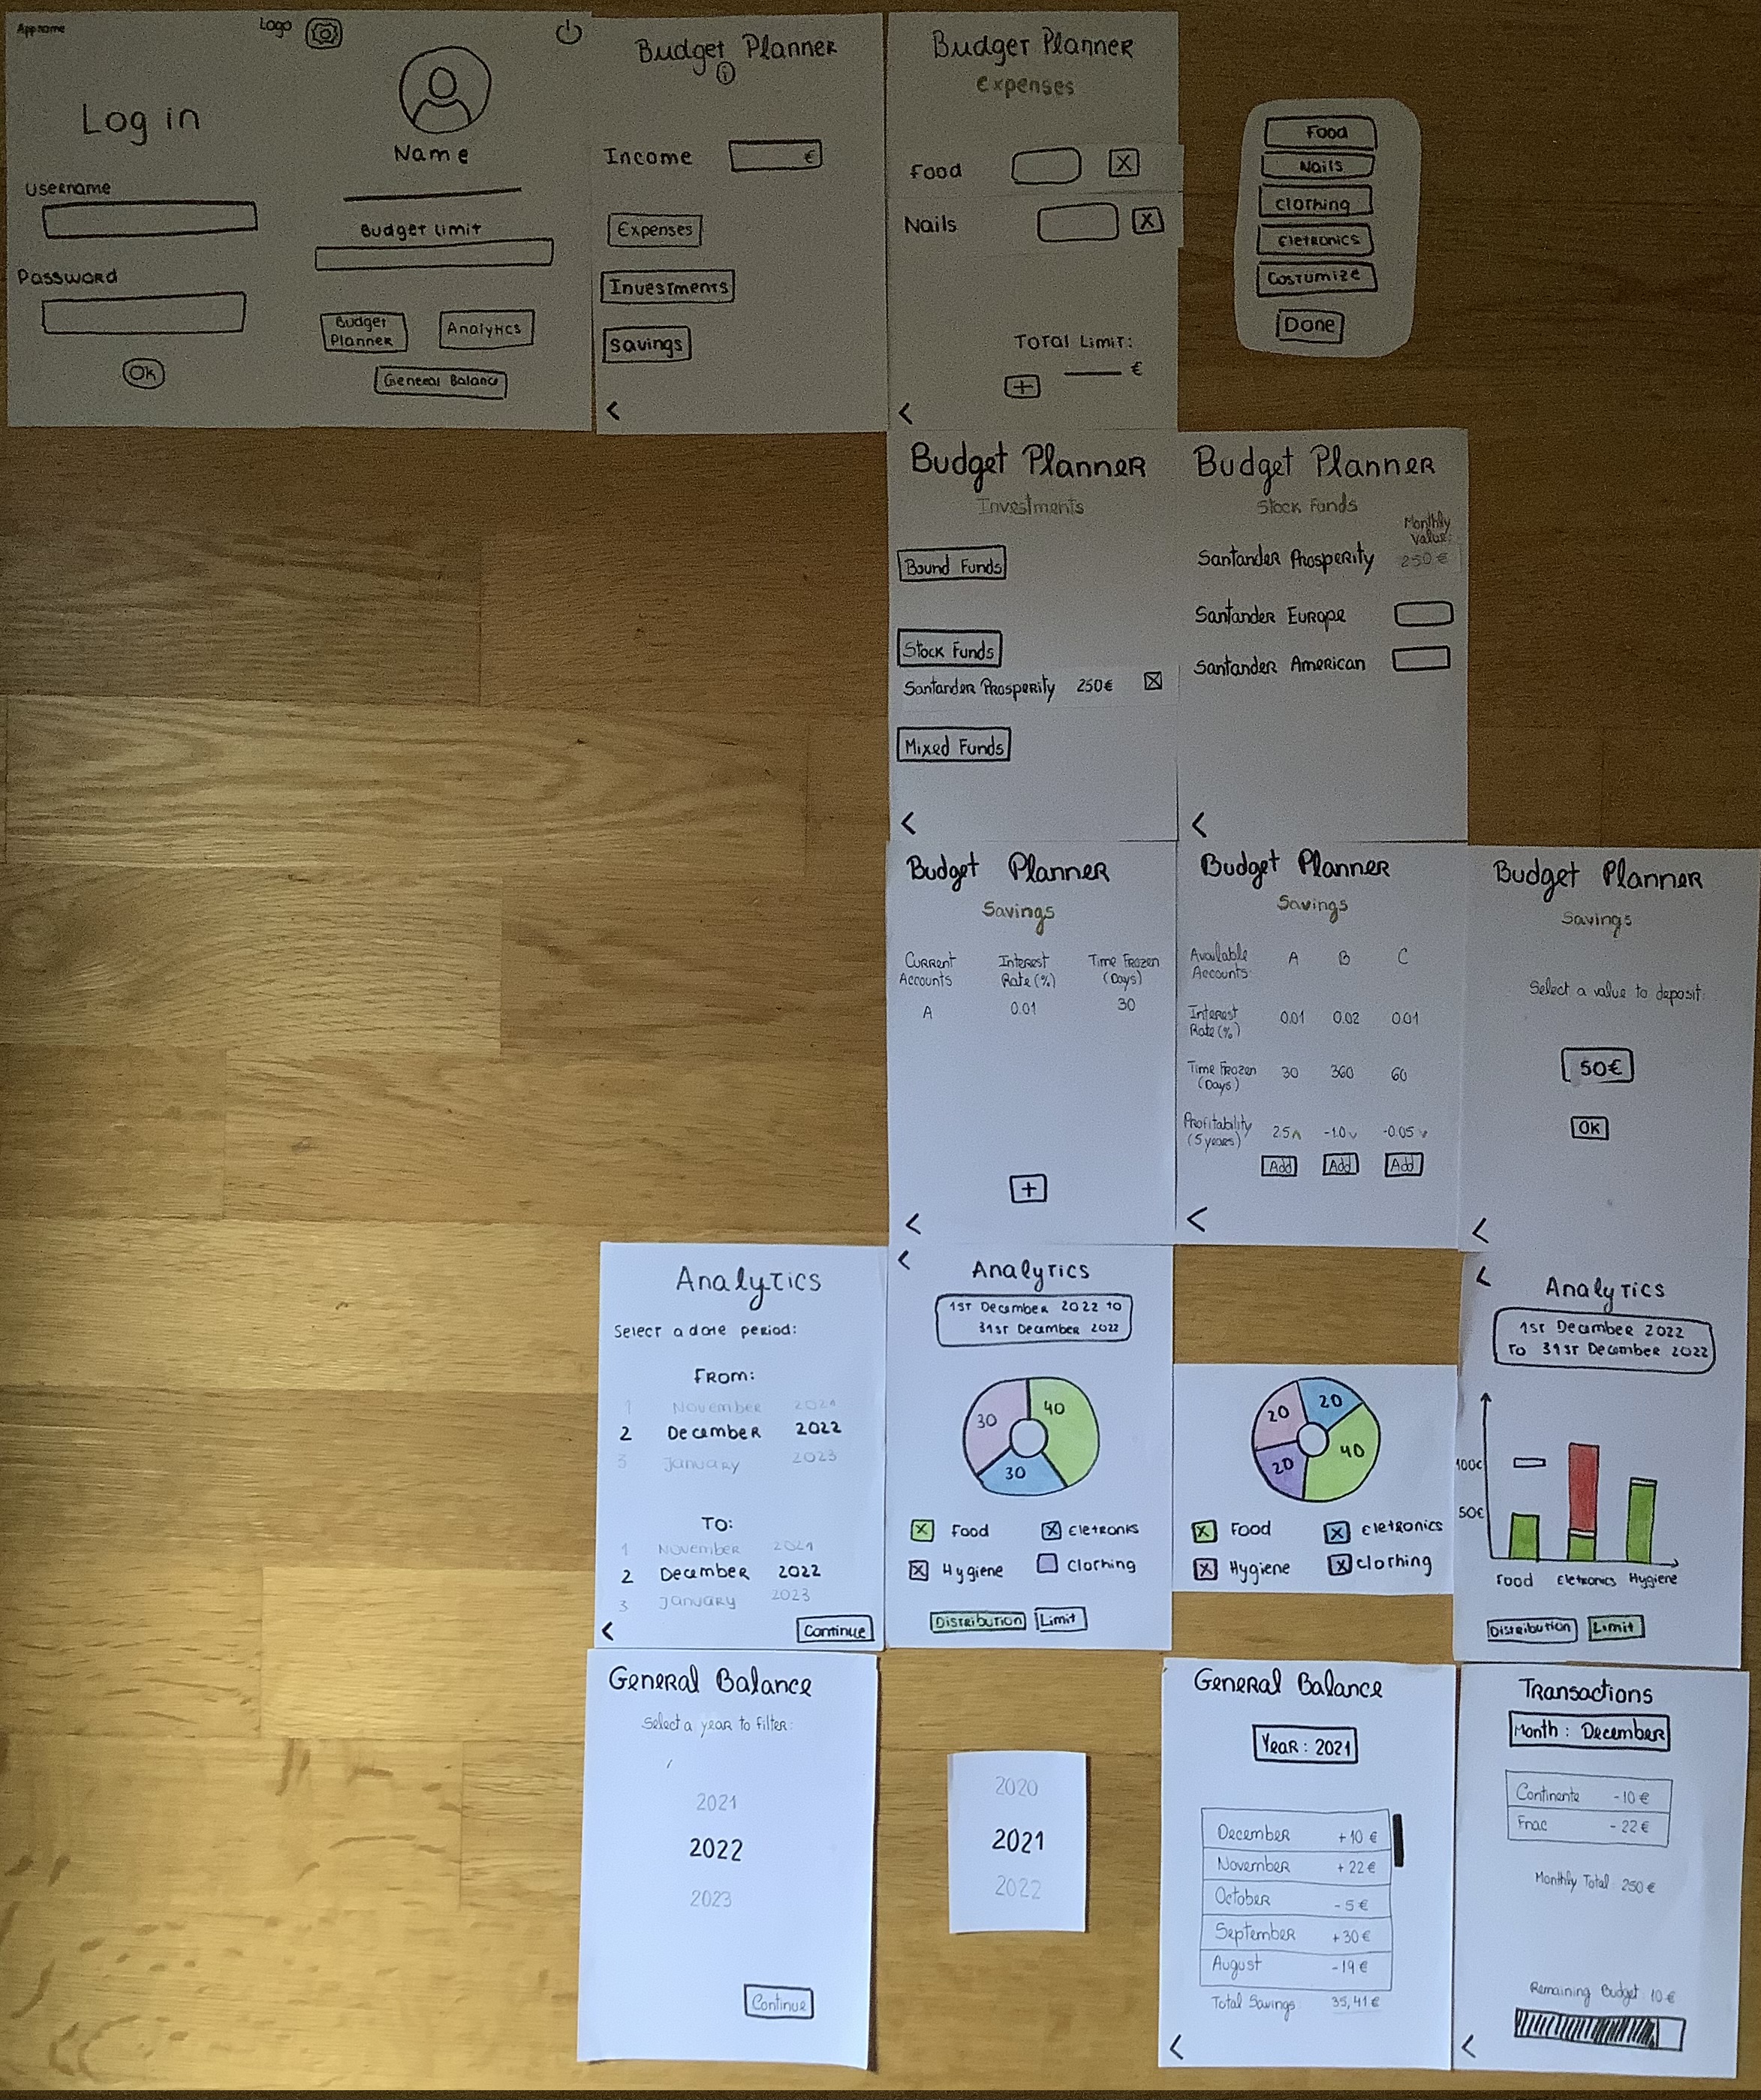 App name
Logo
Log in
Username
Password
Ok
Name
Budget Limit
Budget
Planner
Analytics
General Balance
Budget Planner
i
Income
€
Expenses
Investments
Savings
<
Budget Planner
Expenses
Food
X
Nails
X
Total Limit:
€
+
<
Food
Nails
Clothing
Eletronics
Costumize
Done
Budget Planner
Investments
Bound Funds
Stock Funds
Santander Prosperity 250€
X
Mixed Funds
<
Budget Planner
Stock Funds
Monthly
Value:
Santander Prosperity 250€
Santander Europe
Santander American
<
Budget Planner
Savings
Current
Accounts
Interest
Rate (%)
Time Frozen
(Days)
A 0.01 30
+
<
Budget Planner
Savings
Available
Accounts:
A B C
Interest
Rate (%)
0.01 0.02 0.01
Time Frozen
(Days)
30 360 60
Profitability
(5 years)
2.5 -1.0 -0.05
Add Add Add
<
Budget Planner
Savings
Select a value to deposit:
50€
OK
<
Analytics
Select a date period:
From:
1 November 2021
2 December 2022
3 January 2023
To:
1 November 2021
2 December 2022
3 January 2023
<
Continue
<
Analytics
1st December 2022 to
31st December 2022
30 40
30
X Food X Eletronks
X Hygiene Clothing
Distribution Limit
20 20
20 40
X Food X Eletronics
X Hygiene X Clothing
<
Analytics
1st December 2022
to 31st December 2022
100€
50€
Food Eletronics Hygiene
Distribution Limit
General Balance
Select a year to filter:
2021
2022
2023
Continue
2020
2021
2022
General Balance
Year: 2021
December +10 €
November +22 €
October -5 €
September +30 €
August -19 €
Total Savings: 35,41 €
<
Transactions
Month: December
Continente -10 €
Fnac -22 €
Monthly Total: 250 €
Remaining Budget: 10 €
<